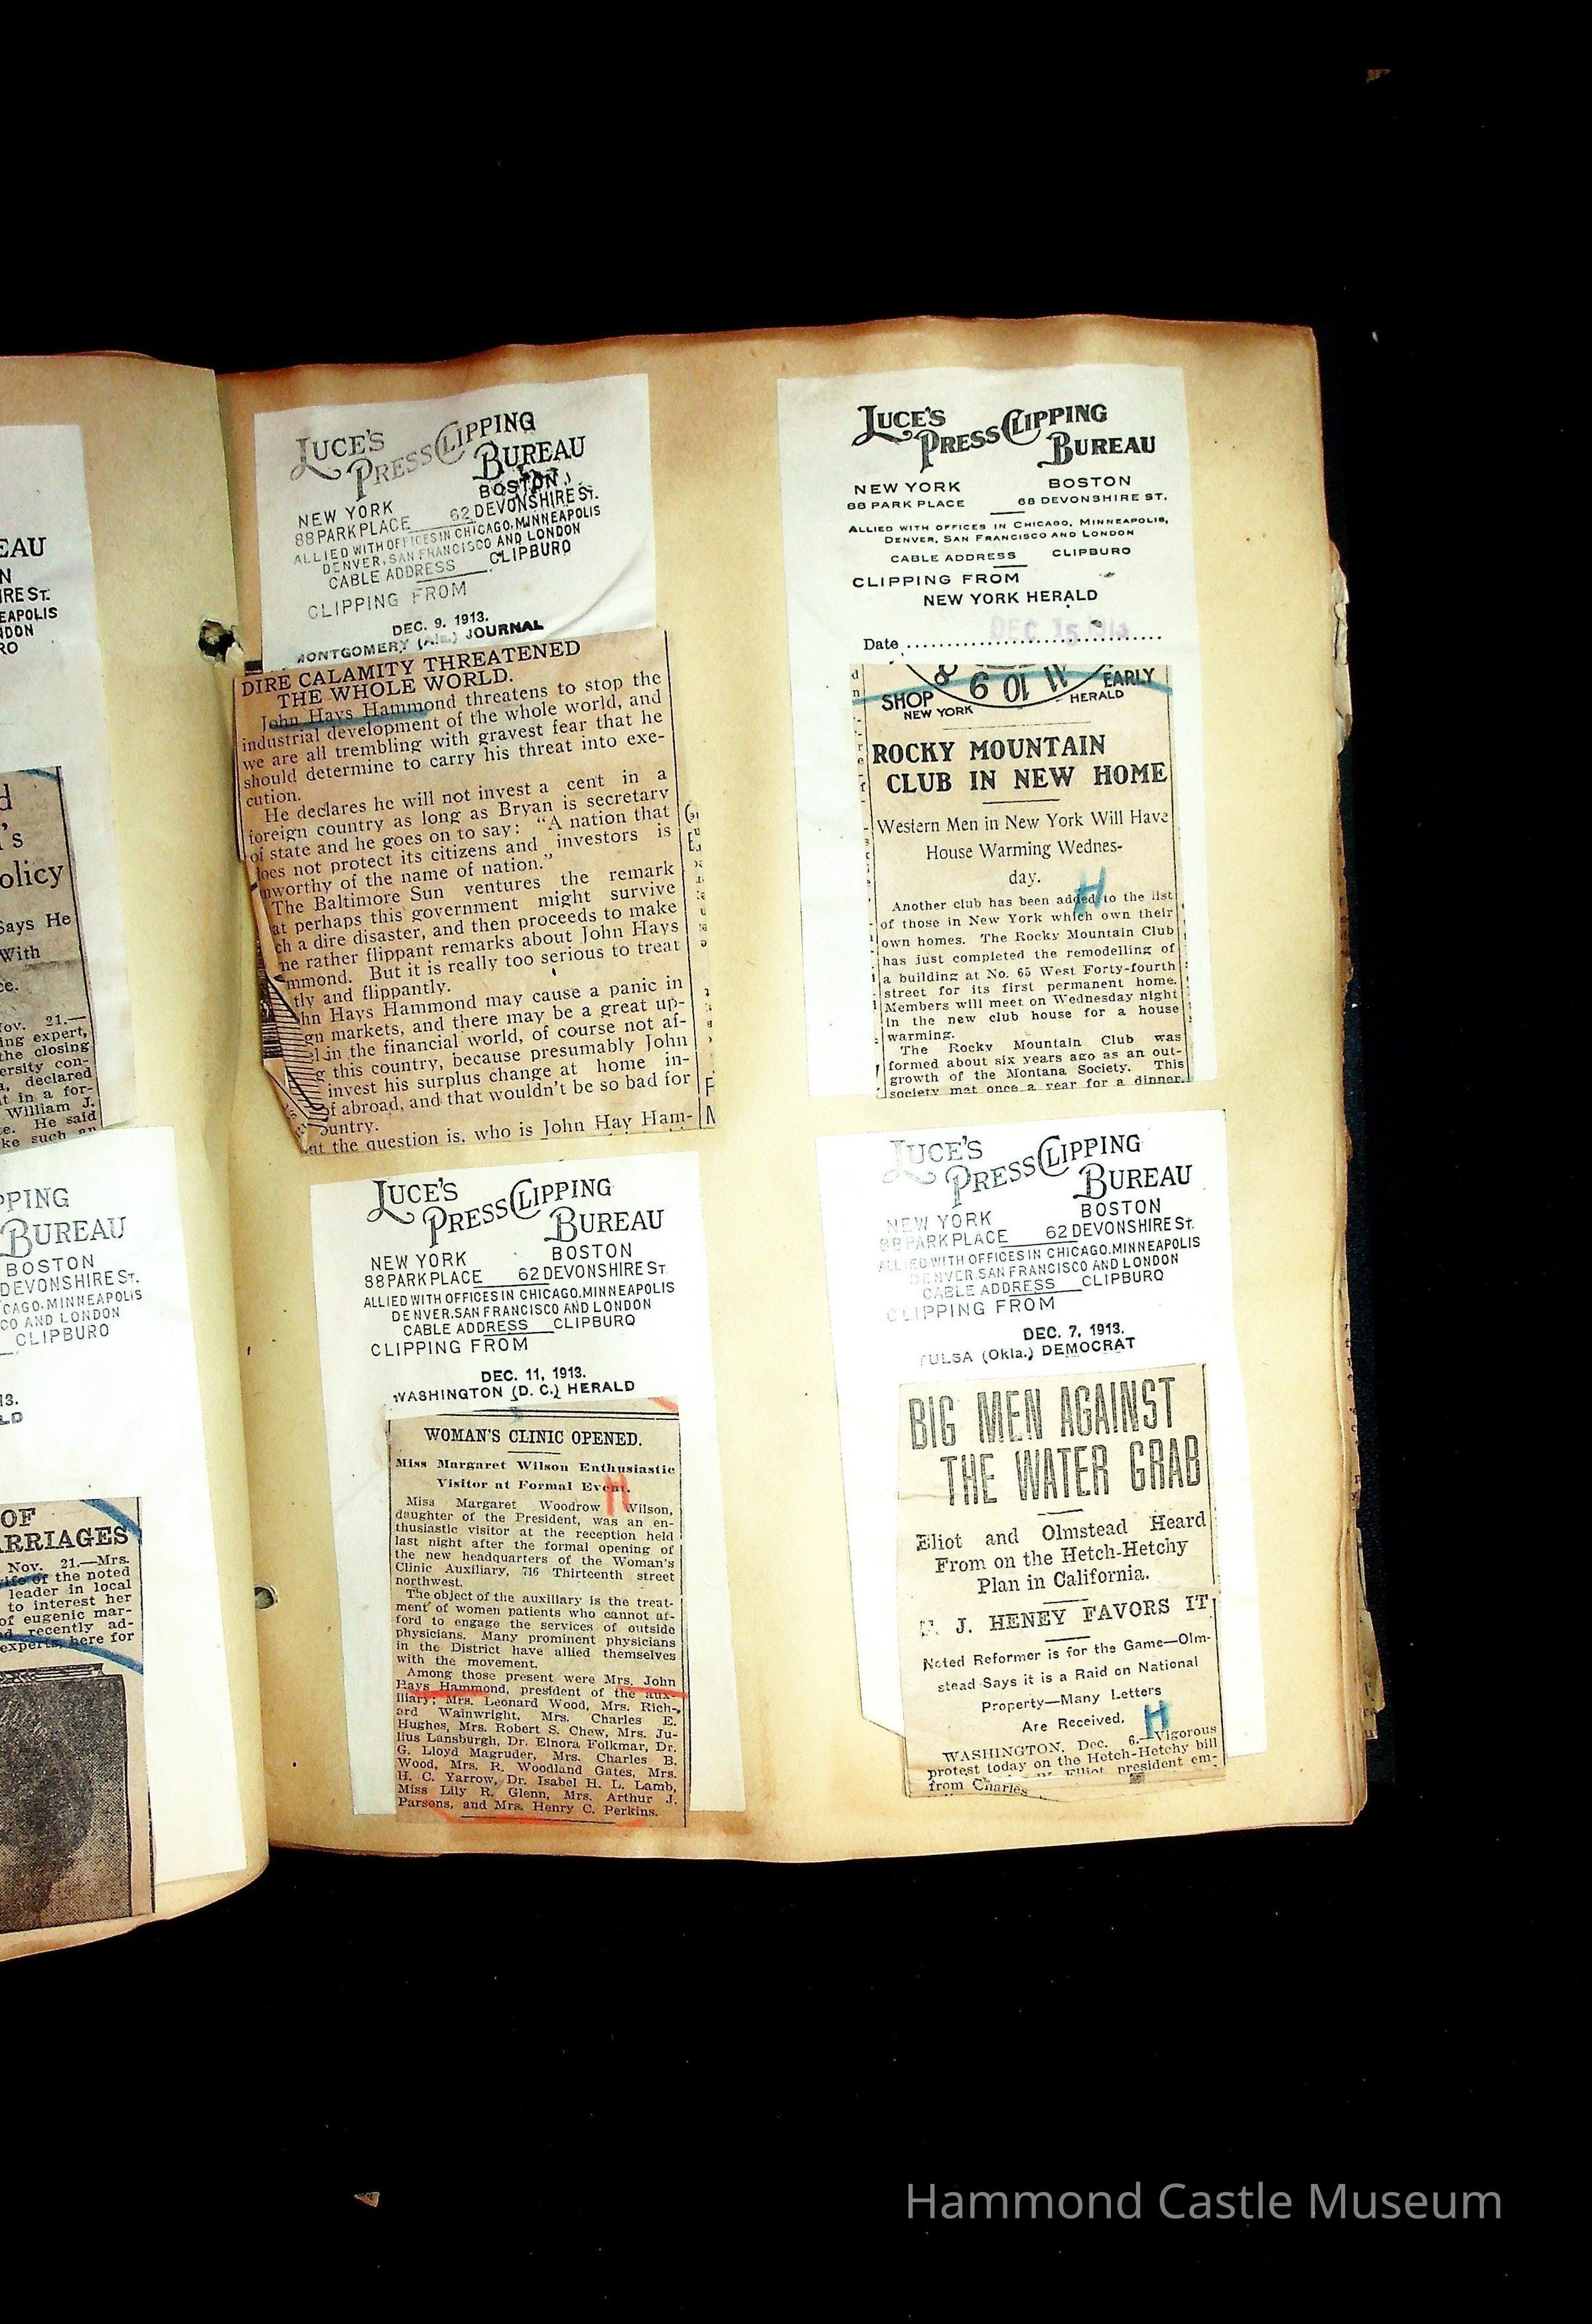 EAU
N
IRE ST.
EAPOLIS
NDON
RO
d
's
olicy
Says He
With
ce.
Nov. 21.—
ing expert,
the closing
ersity con-
a, declared
t in a for-
William J.
e. He said
ke such an
PPING
BUREAU
BOSTON
DEVONSHIRE ST.
CAGO. MINNEAPOLIS
CO AND LONDON
CLIPBURO
13.
LD
OF
ARRIAGES
Nov. 21.—Mrs.
wife of the noted
leader in local
to interest her
of eugenic mar-
d recently ad-
experts, here for
LUCE'S
PRESS CLIPPING
BUREAU
NEW YORK BOSTON
88 PARK PLACE 62 DEVONSHIRE ST.
ALLIED WITH OFFICES IN CHICAGO, MINNEAPOLIS
DENVER, SAN FRANCISCO AND LONDON
CABLE ADDRESS CLIPBURO
CLIPPING FROM
DEC. 9, 1913.
MONTGOMERY (Ala.) JOURNAL
DIRE CALAMITY THREATENED
THE WHOLE WORLD.
John Hays Hammond threatens to stop the
industrial development of the whole world, and
we are all trembling with gravest fear that he
should determine to carry his threat into exe-
cution.
He declares he will not invest a cent in a
foreign country as long as Bryan is secretary
of state and he goes on to say: "A nation that
does not protect its citizens and investors is
nworthy of the name of nation."
The Baltimore Sun ventures the remark
at perhaps this government might survive
ch a dire disaster, and then proceeds to make
me rather flippant remarks about John Hays
mmond. But it is really too serious to treat
tly and flippantly.
hn Hays Hammond may cause a panic in
gn markets, and there may be a great up-
l in the financial world, of course not af-
g this country, because presumably John
invest his surplus change at home in-
of abroad, and that wouldn't be so bad for
ountry.
ut the question is, who is John Hay Ham-
LUCE'S
PRESS CLIPPING
BUREAU
NEW YORK BOSTON
88 PARK PLACE 62 DEVONSHIRE ST.
ALLIED WITH OFFICES IN CHICAGO, MINNEAPOLIS
DENVER. SAN FRANCISCO AND LONDON
CABLE ADDRESS CLIPBURO
CLIPPING FROM
DEC. 11, 1913.
WASHINGTON (D. C.) HERALD
WOMAN'S CLINIC OPENED.
Miss Margaret Wilson Enthusiastic
Visitor at Formal Event.
H
Miss Margaret Woodrow Wilson,
daughter of the President, was an en-
thusiastic visitor at the reception held
last night after the formal opening of
the new headquarters of the Woman's
Clinic Auxiliary, 716 Thirteenth street
northwest.
The object of the auxiliary is the treat-
ment of women patients who cannot af-
ford to engage the services of outside
physicians. Many prominent physicians
in the District have allied themselves
with the movement.
Among those present were Mrs. John
Hays Hammond, president of the aux-
iliary; Mrs. Leonard Wood, Mrs. Rich-
ard Wainwright, Mrs. Charles E.
Hughes, Mrs. Robert S. Chew, Mrs. Ju-
lius Lansburgh, Dr. Elnora Folkmar, Dr.
G. Lloyd Magruder, Mrs. Charles B.
Wood, Mrs. R. Woodland Gates, Mrs.
H. C. Yarrow, Dr. Isabel H. L. Lamb,
Miss Lily R. Glenn, Mrs. Arthur J.
Parsons, and Mrs. Henry C. Perkins.
LUCE'S
PRESS CLIPPING
BUREAU
NEW YORK BOSTON
88 PARK PLACE 68 DEVONSHIRE ST.
ALLIED WITH OFFICES IN CHICAGO, MINNEAPOLIS,
DENVER, SAN FRANCISCO AND LONDON
CABLE ADDRESS CLIPBURO
CLIPPING FROM
NEW YORK HERALD
Date DEC 15 1913
8 9 10 11
SHOP EARLY
NEW YORK HERALD
ROCKY MOUNTAIN
CLUB IN NEW HOME
Western Men in New York Will Have
House Warming Wednes-
day.
H
Another club has been added to the list
of those in New York which own their
own homes. The Rocky Mountain Club
has just completed the remodelling of
a building at No. 65 West Forty-fourth
street for its first permanent home.
Members will meet on Wednesday night
in the new club house for a house
warming.
The Rocky Mountain Club was
formed about six years ago as an out-
growth of the Montana Society. This
society met once a year for a dinner,
LUCE'S
PRESS CLIPPING
BUREAU
NEW YORK BOSTON
88 PARK PLACE 62 DEVONSHIRE ST.
ALLIED WITH OFFICES IN CHICAGO, MINNEAPOLIS
DENVER. SAN FRANCISCO AND LONDON
CABLE ADDRESS CLIPBURO
CLIPPING FROM
DEC. 7, 1913.
TULSA (Okla.) DEMOCRAT
BIG MEN AGAINST
THE WATER GRAB
Eliot and Olmstead Heard
From on the Hetch-Hetchy
Plan in California.
F. J. HENEY FAVORS IT
Noted Reformer is for the Game—Olm-
stead Says it is a Raid on National
Property—Many Letters
Are Received.
H
WASHINGTON, Dec. 6.—Vigorous
protest today on the Hetch-Hetchy bill
from Charles W. Elliot, president em-
Hammond Castle Museum